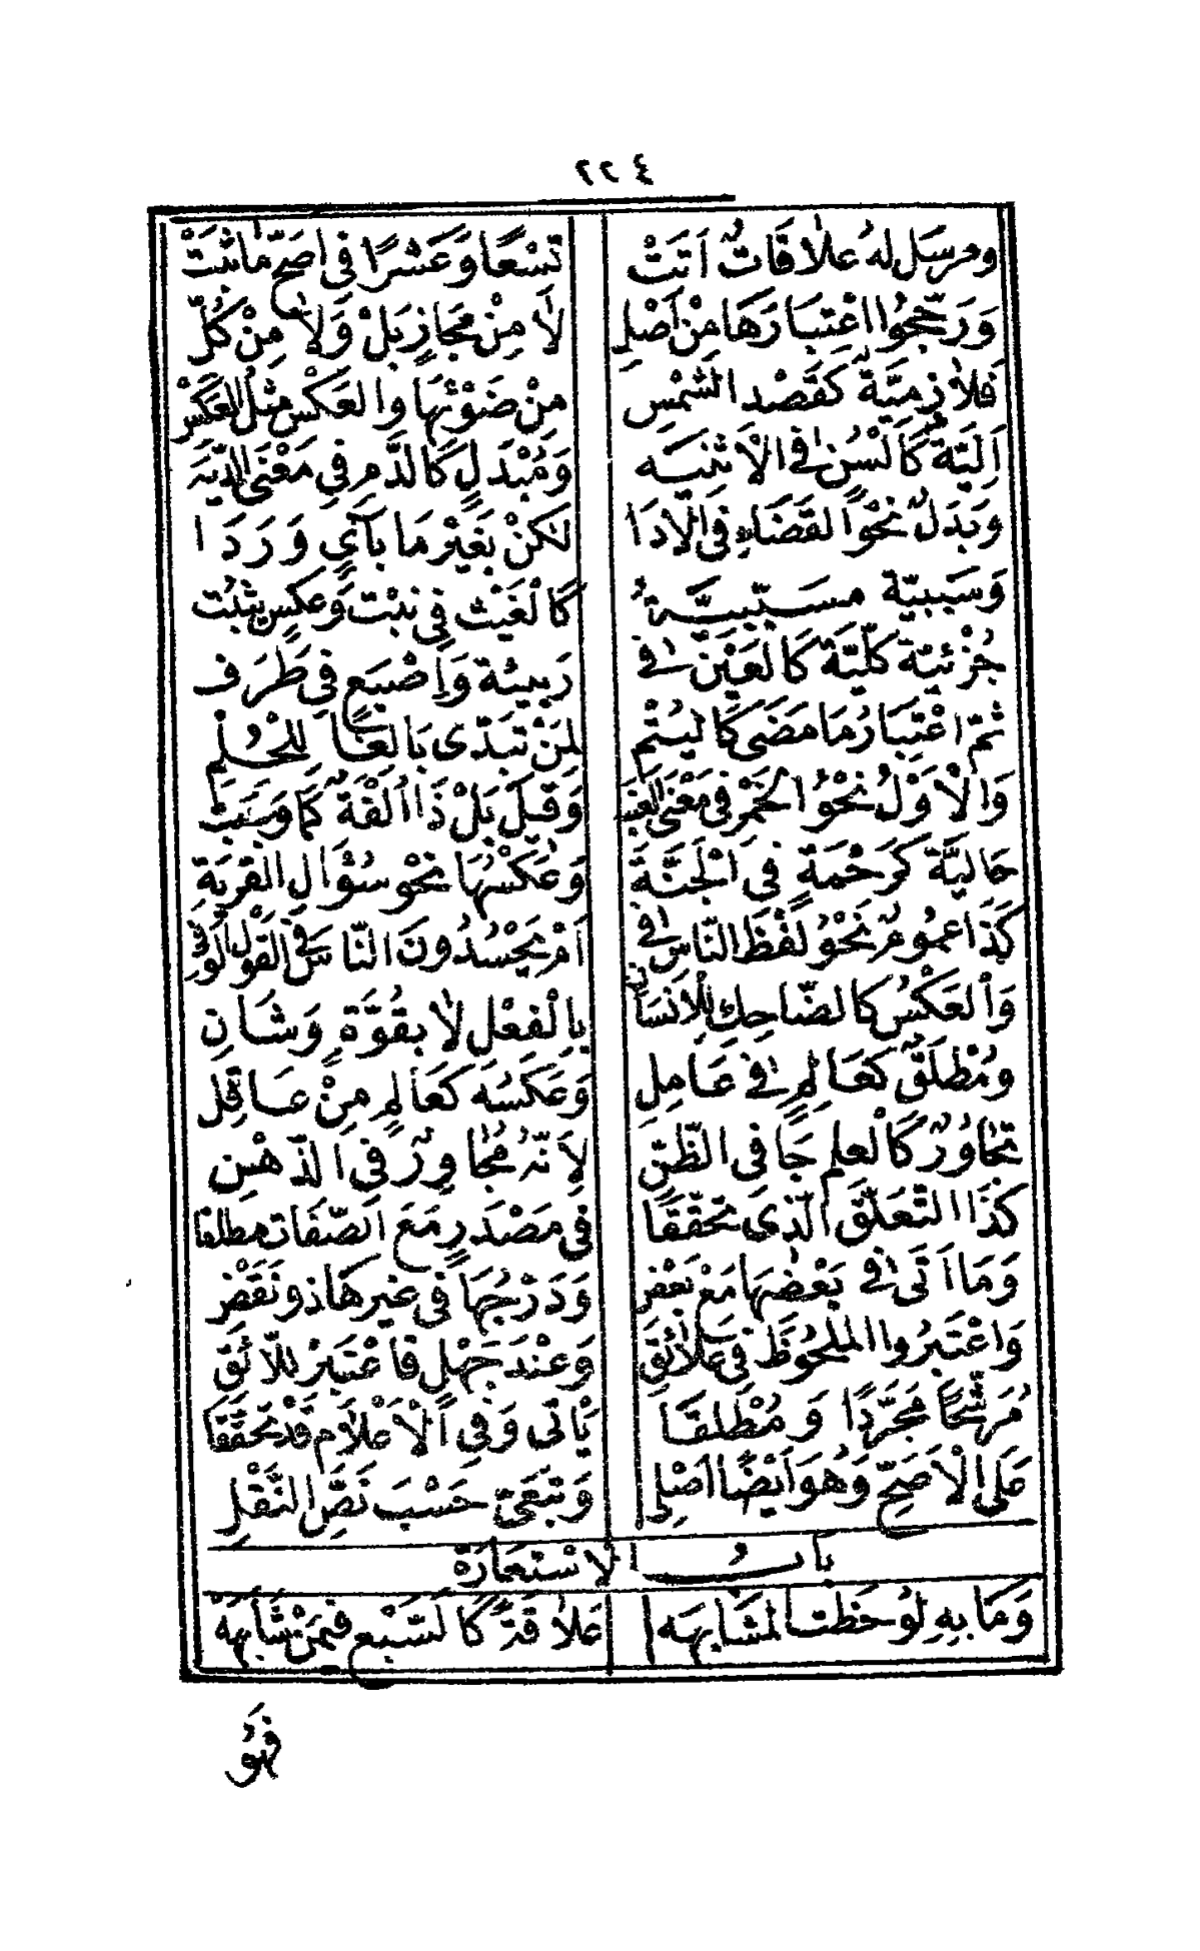 ٢٢٤
ومرسل له علاقات أتت تسعا وعشرا في أصح ما ثبت
ورجحوا اعتبارها من أصل لا من مجاز بل ولا من كل
فلازمية كقصد الشمس من ضوئها والعكس مثل العكس
آلية كالسن في الاثنيه ومبدل كالدم في معنى الديه
وبدل نحو القضاء في الادا لكن بغير ما بآي وردا
وسببية مسببية كالغيث في نبت وعكس يثبت
جزئية كلية كالعين في ربيئة وإصبع في طرف
ثم اعتبار ما مضى كاليتم لمن تبدى بالغا للحلم
والأول نحو الخمر في معنى العنب وقيل بل ذا الفة كما وسبت
حالية كرحمة في الجنة وعكسها نحو سؤال القرية
كذا عموم نحو لفظ الناس في أم يحسدون الناس في القول الوفي
والعكس كالضاحك للانسان بالفعل لا بقوة وشان
ومطلق كعالم في عامل وعكسه كعالم من عاقل
تجاور كالعلم جا في الظن لأنه مجاور في الذهن
كذا التعلق الذي تحققا في مصدر مع الصفات مطلقا
وما أتى في بعضها مع بعض ودرجها في غير هاذو نقض
واعتبروا الملحوظ في علائق وعند جهل فاعتبر للائق
مرشحا مجردا ومطلقا يأتي وفي الأعلام قد تحققا
على الأصح وهو أيضا أصلي وتبعي حسب نص النقل
باب الاستعارة
وما به لوحظت المشابهه علاقة كالسبع فيمن شابهه
فهو